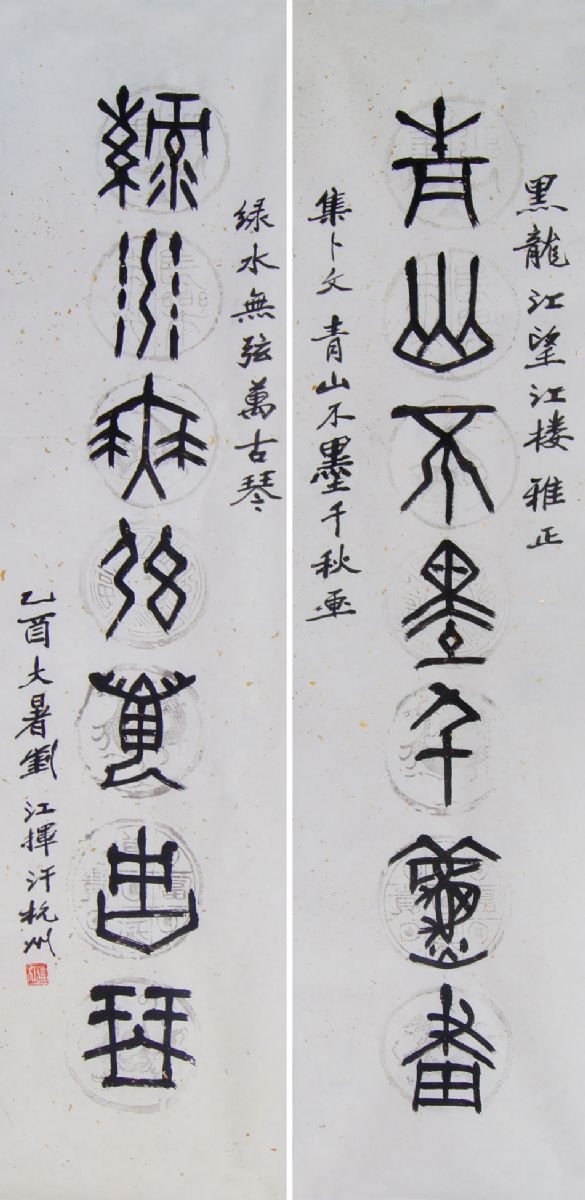 黑龍江望江楼雅正
青山不墨千秋畫
集卜文 青山不墨千秋画
綠水無弦萬古琴
绿水無弦萬古琴
乙酉大暑劉江揮汗杭州